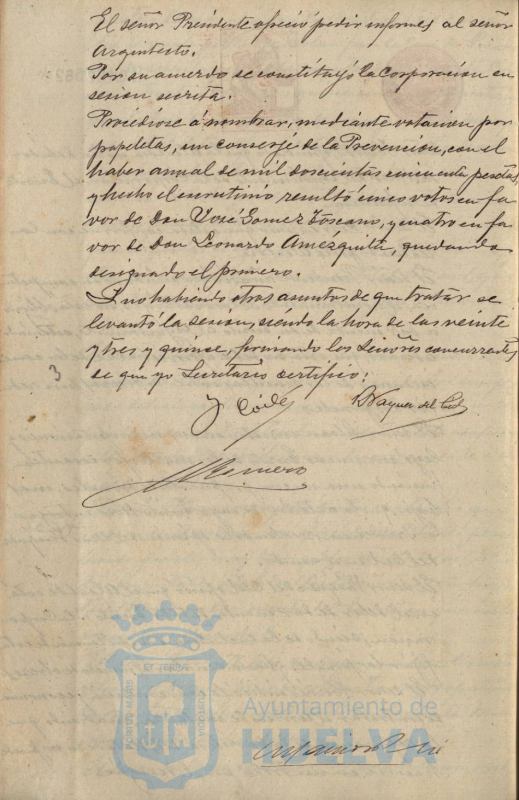 El señor Presidente ofreció pedir informes al señor
Arquitecto.
Por su acuerdo se constituyó la Corporación en
sesión secreta.
Procedióse á nombrar, mediante votación por
papeletas, un conserje de la Prevención, con el
haber anual de mil doscientas cincuenta pesetas,
y hecho el escrutinio resultó cinco votos en fa
vor de Don José Gomez Toscano, y cuatro en fa
vor de Don Leonardo Amézquita, quedando
designado el primero.
Y no habiendo otros asuntos de que tratar se
levantó la sesión, siendo la hora de las veinte
y tres y quince, firmando los Señores concurrentes
de que yo Secretario certifico:
3
Vazquez del Cid
Romero
PORTUS MARIS
ET TERRÆ
CUSTODIA
Ayuntamiento de
HUELVA